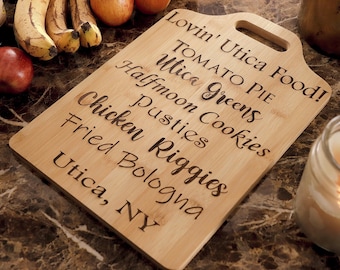 Lovin' Utica Food!
Tomato Pie
Utica Greens
Halfmoon Cookies
Pusties
Chicken Riggies
Fried Bologna
Utica, NY